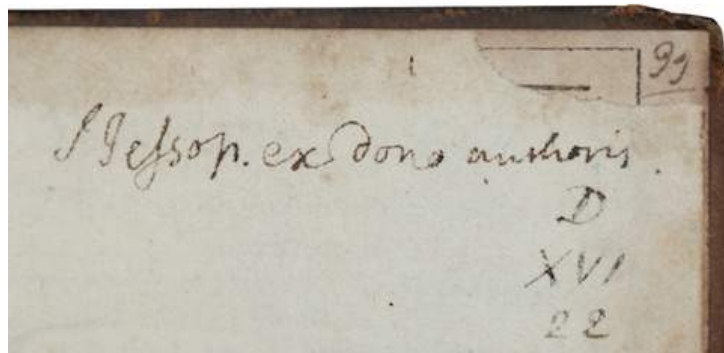 99
J Jessop. ex dono authoris.
D
XVI
22